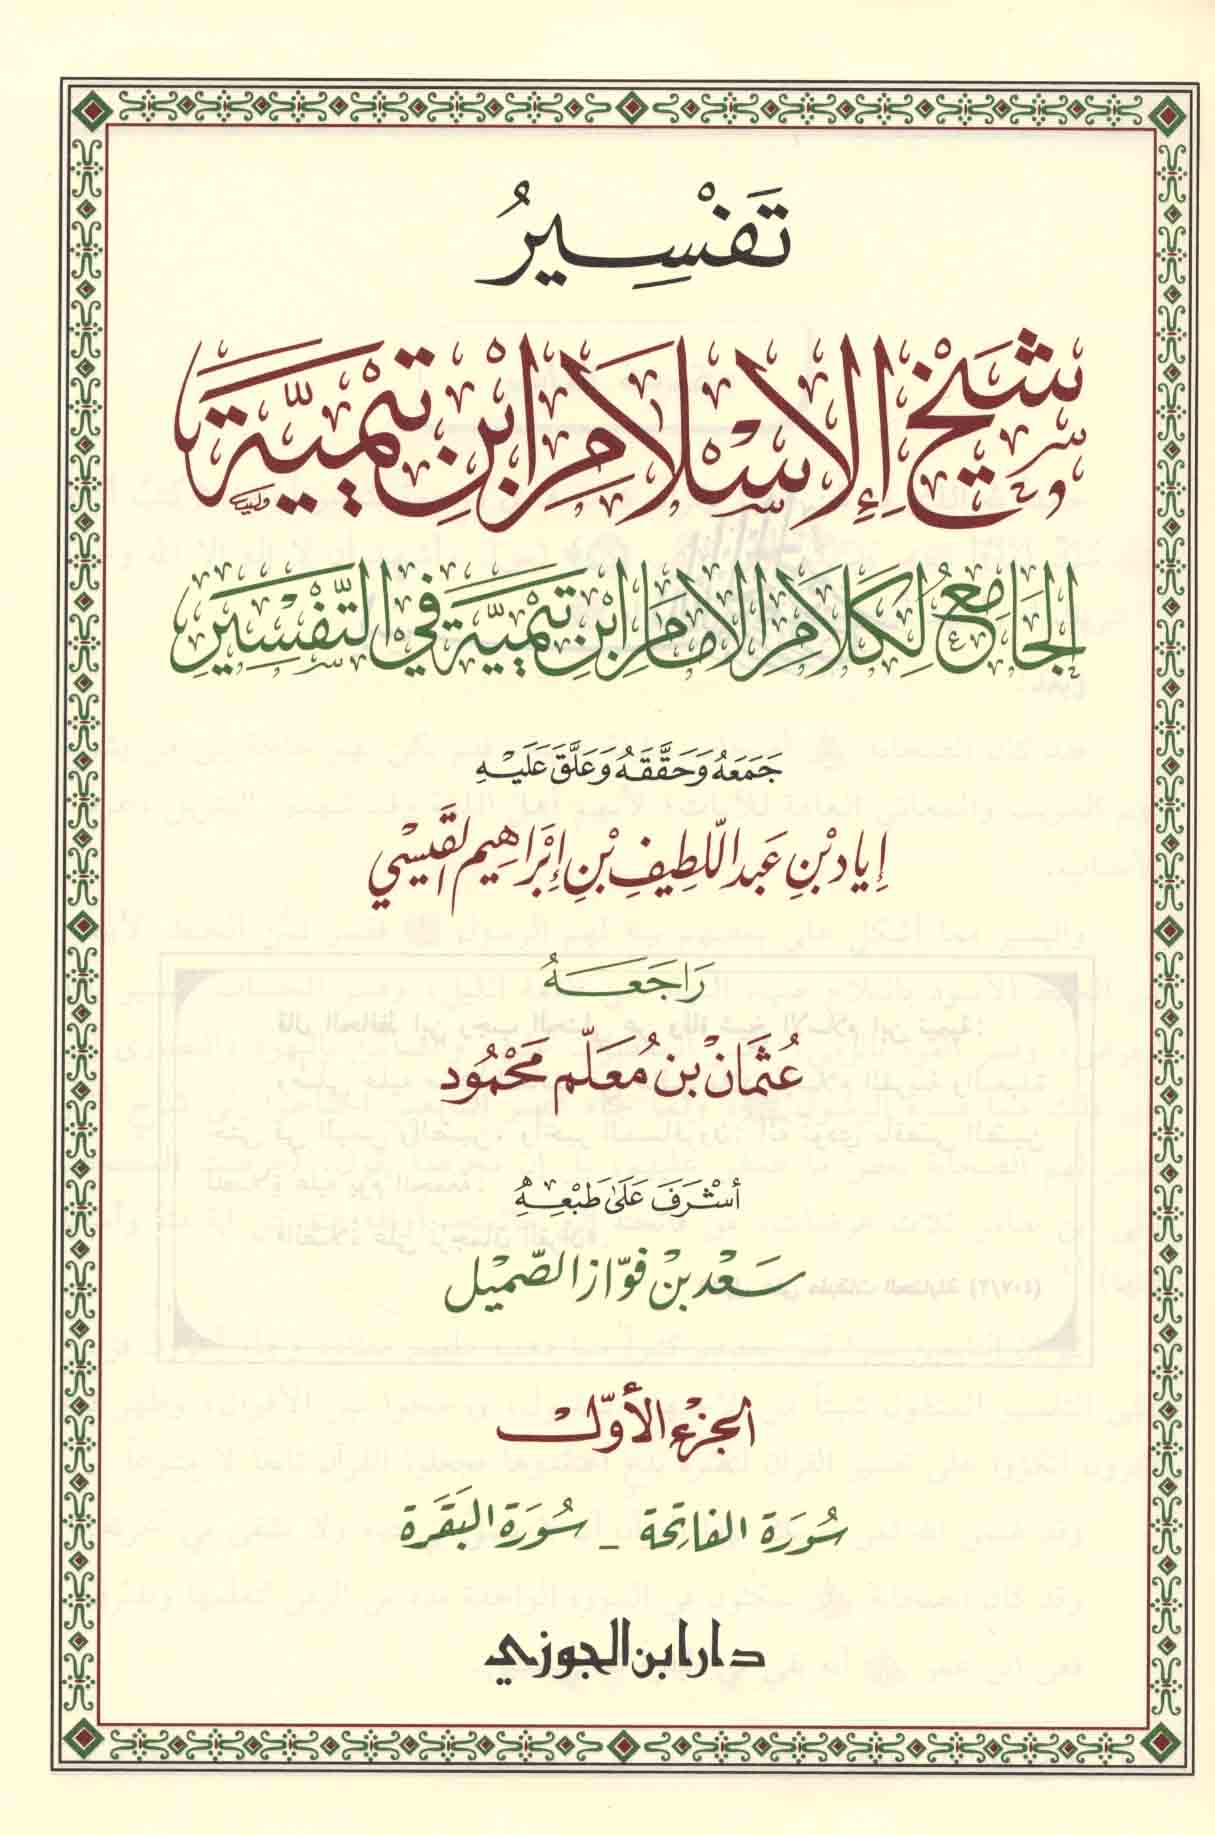 تَفْسِيرُ
شَيْخِ الإِسْلَامِ ابْنِ تَيْمِيَّةَ
الجَامِعُ لِكَلَامِ الإِمَامِ ابْنِ تَيْمِيَّةَ فِي التَّفْسِيرِ
جَمَعَهُ وَحَقَّقَهُ وَعَلَّقَ عَلَيْهِ
إِيَاد بْنِ عَبْد اللَّطِيفِ بْنِ إِبْرَاهِيم القَيْسِي
رَاجَعَهُ
عُثْمَانْ بْن مُعَلّم مَحْمُود
أَشْرَفَ عَلَى طَبْعِهِ
سَعْد بن فَوَّاز الصّمَيْل
الجزءُ الأوّل
سُورَة الفَاتِحَة – سُورَة البَقَرَة
دار ابن الجوزي